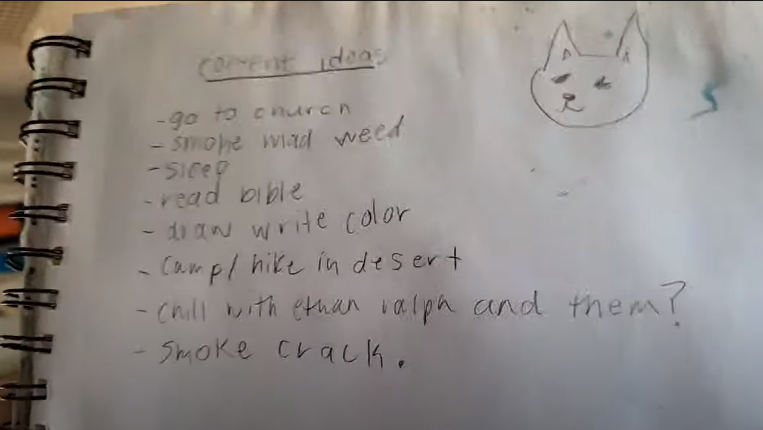 current ideas
- go to church
- smoke mad weed
- sleep
- read bible
- draw write color
- camp/hike in desert
- chill with ethan ralph and them?
- smoke crack.